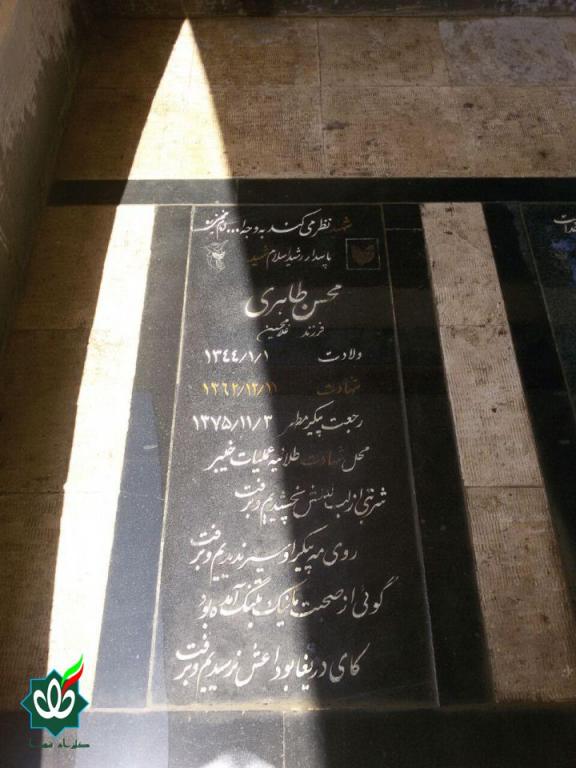 شهید نظر می کند به وجه ا...
پاسدار رشید اسلام شهید
محسن طاهری
فرزند غلامحسین
ولادت ۱۳۴۴/۱/۱
شهادت ۱۳۶۲/۱۲/۱۱
رجعت پیکر مطهر ۱۳۷۵/۱۱/۳
محل شهادت طلائیه عملیات خیبر
شربتی از لب لعلش نچشیدیم و برفت
روی مه پیکر او سیر ندیدیم و برفت
گوئی از صحبت ما نیک بتنگ آمده بود
کای دریغا بوداعش نرسیدیم و برفت